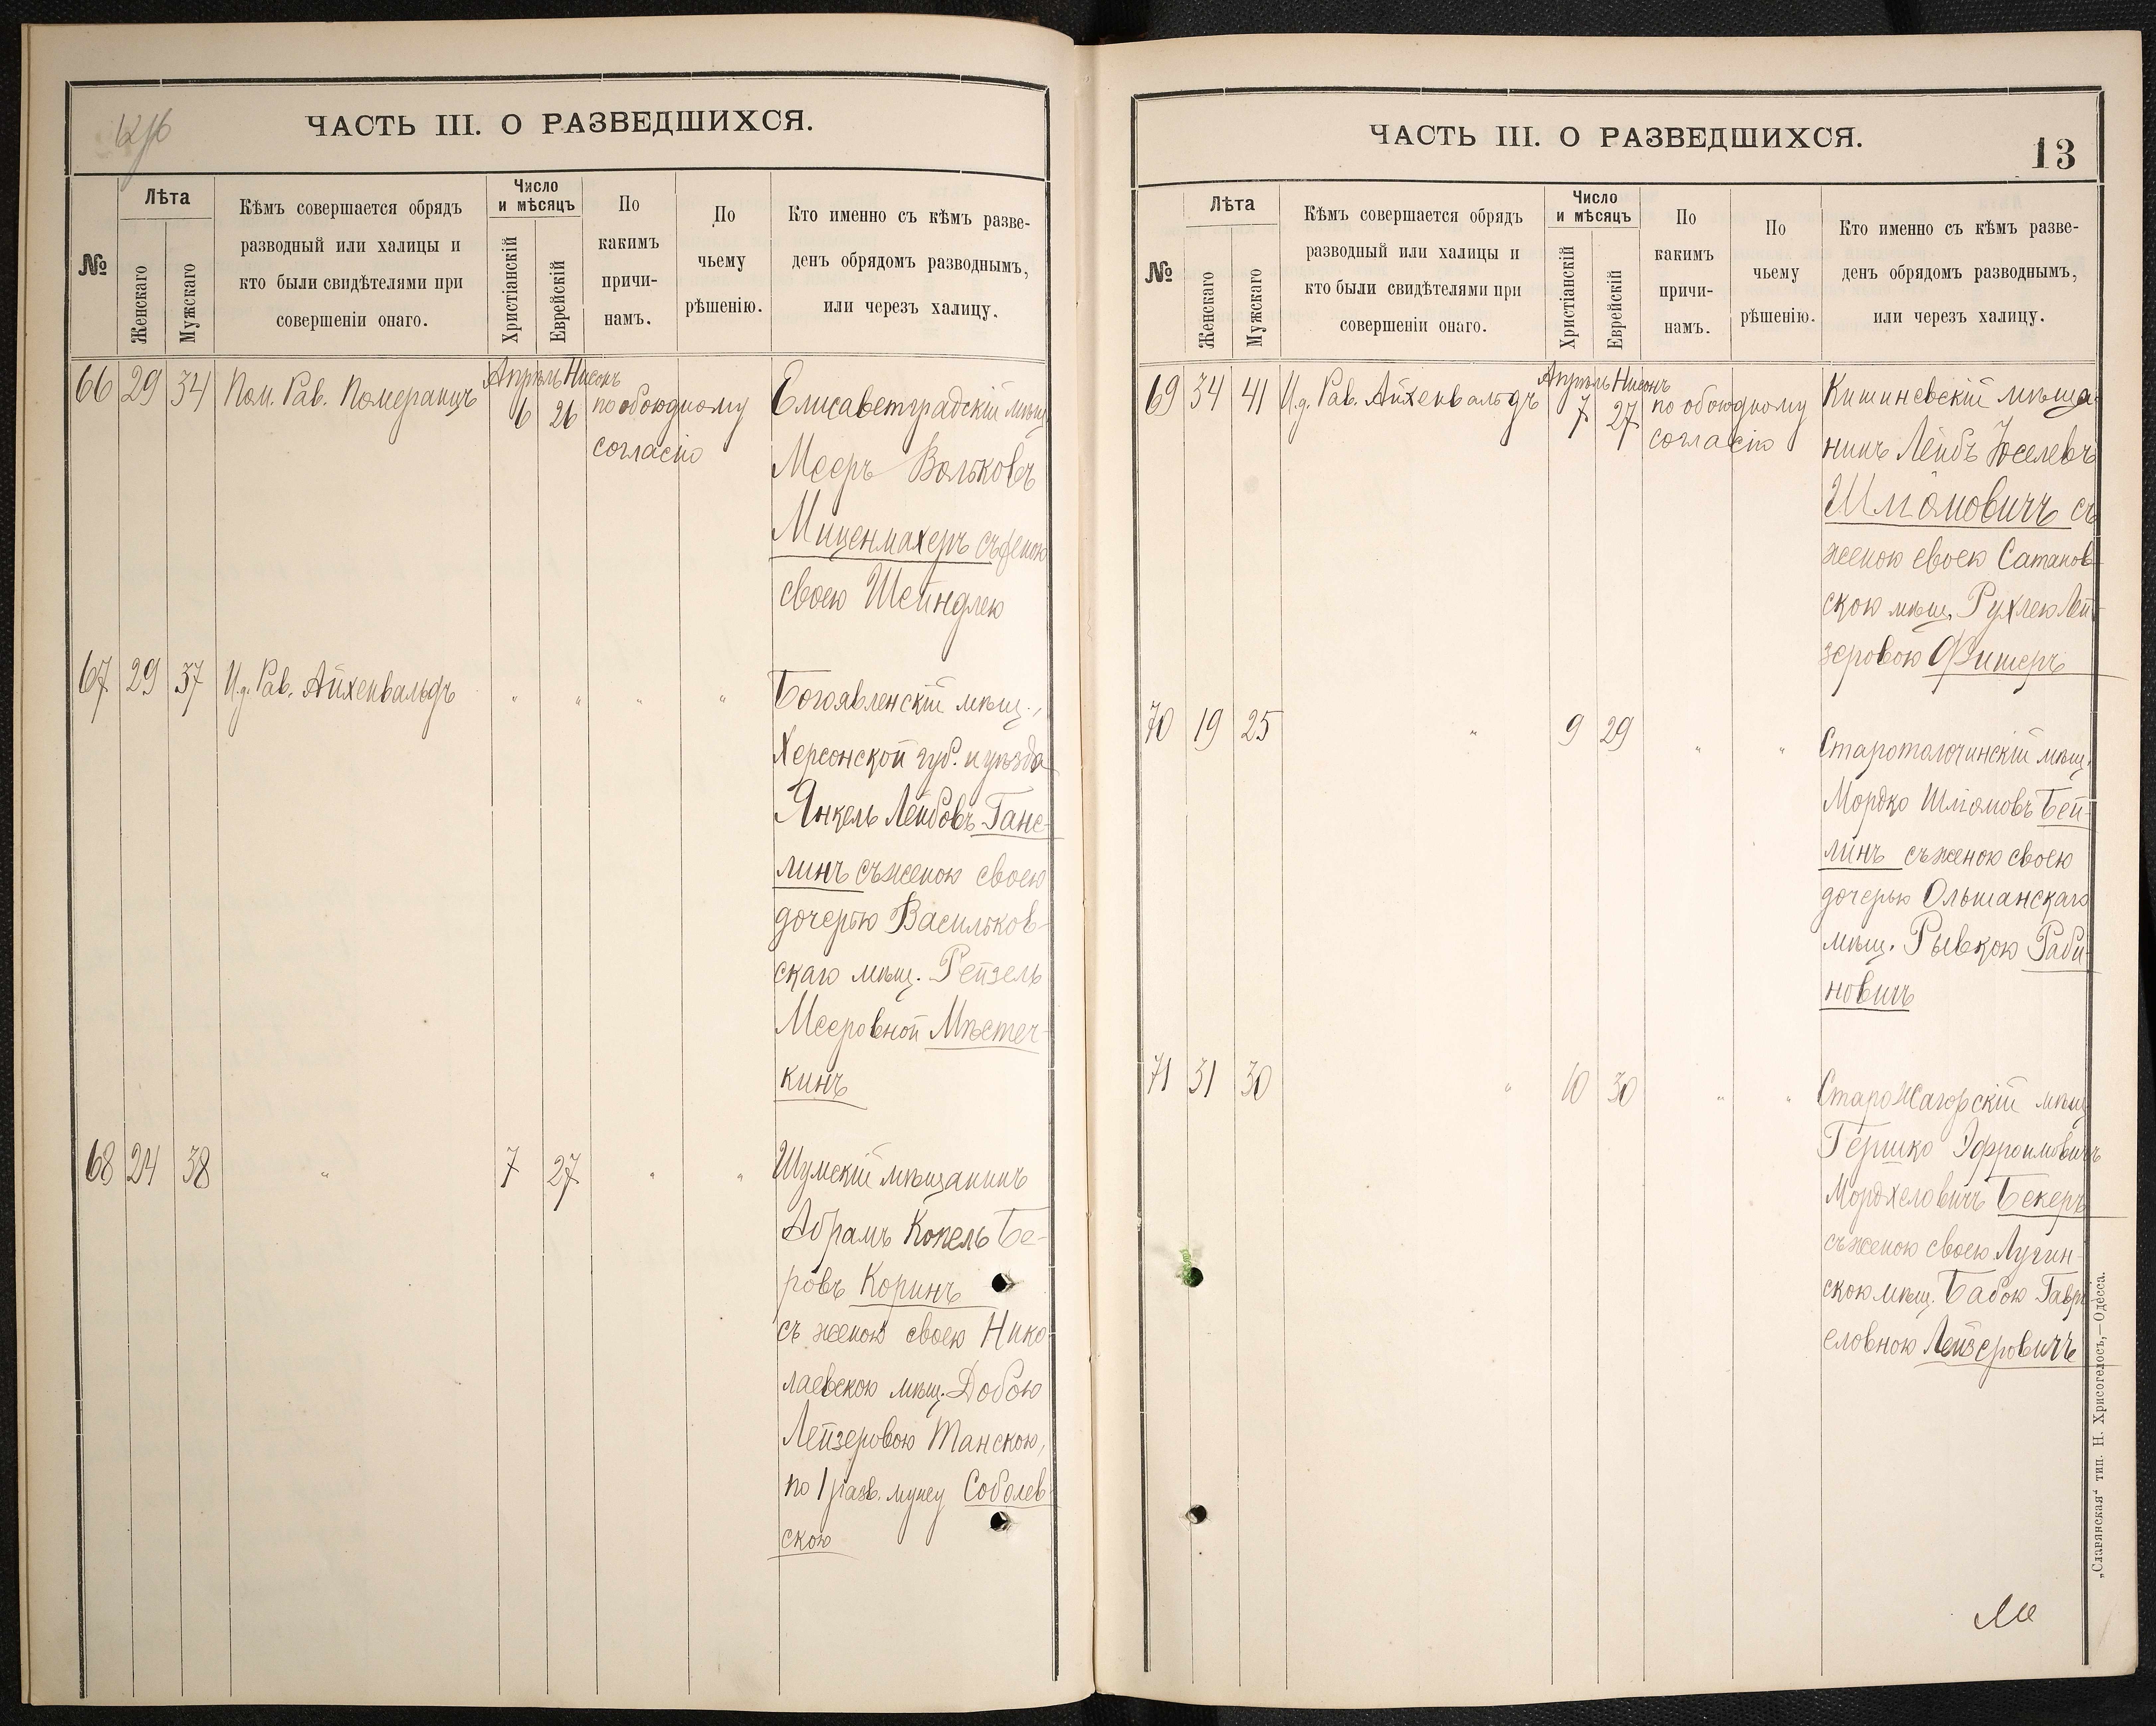 ЧАСТЬ III. О РАЗВЕДШИХСЯ.
№
Лѣта
Женскаго
Мужскаго
Кѣмъ совершается обрядъ
разводный или халицы и
кто были свидѣтелями при
совершеніи онаго.
Число
и мѣсяцъ
Христіанскій
Еврейскій
По
какимъ
причи-
намъ.
По
чьему
рѣшенію.
Кто именно съ кѣмъ разве-
денъ обрядомъ разводнымъ,
или черезъ халицу.
66 29 34 Пом. Рав. Померанцъ
Апрѣль Нисонъ
6 26
по обоюдному
согласію
Елисаветградскій мѣщ.
Мееръ Вольковъ
Миценмахеръ съ женою
своею Шейндлею
67 29 37 И.д. Рав. Айхенвальдъ " " " "
Богоявленскій мѣщ.,
Херсонской губ. и уѣзда
Янкель Лейбовъ Ганс-
линъ съ женою своею
дочерью Васильков-
скаго мѣщ. Рейзель
Мееровной Мѣстеч-
кинъ
68 24 38 " 7 27 " "
Шумскій мѣщанинъ
Абрамъ Копель Бе-
ровъ Коринъ
съ женою своею Нико-
лаевскою мѣщ. Добою
Лейзеровою Танскою,
по 1 разв. мужу Соболев-
скою
ЧАСТЬ III. О РАЗВЕДШИХСЯ.
13
№
Лѣта
Женскаго
Мужскаго
Кѣмъ совершается обрядъ
разводный или халицы и
кто были свидѣтелями при
совершеніи онаго.
Число
и мѣсяцъ
Христіанскій
Еврейскій
По
какимъ
причи-
намъ.
По
чьему
рѣшенію.
Кто именно съ кѣмъ разве-
денъ обрядомъ разводнымъ,
или черезъ халицу.
69 34 41 И.д. Рав. Айхенвальдъ
Апрѣль Нисонъ
7 27
по обоюдному
согласію
Кишиневскій мѣща-
нинъ Лейбъ Іоселевъ
Шліомовичъ съ
женою своею Сатанов-
скою мѣщ. Рухлею Лей-
зеровою Фишеръ
70 19 25 " 9 29 " "
Старотолочинскій мѣщ.
Мордко Шліомовъ Бей-
линъ съ женою своею
дочерью Ольшанскаго
мѣщ. Рывкою Раби-
новичъ
71 31 30 " 10 30 " "
Старо Жагорскій мѣщ.
Гершко Эфроимовичъ
Мордхеловичъ Бекеръ
съ женою своею Лугин-
скою мѣщ. Бабою Гаврі-
еловною Лейзеровичъ
„Славянская“ тип. Н. Хрисогелосъ,—Одесса.